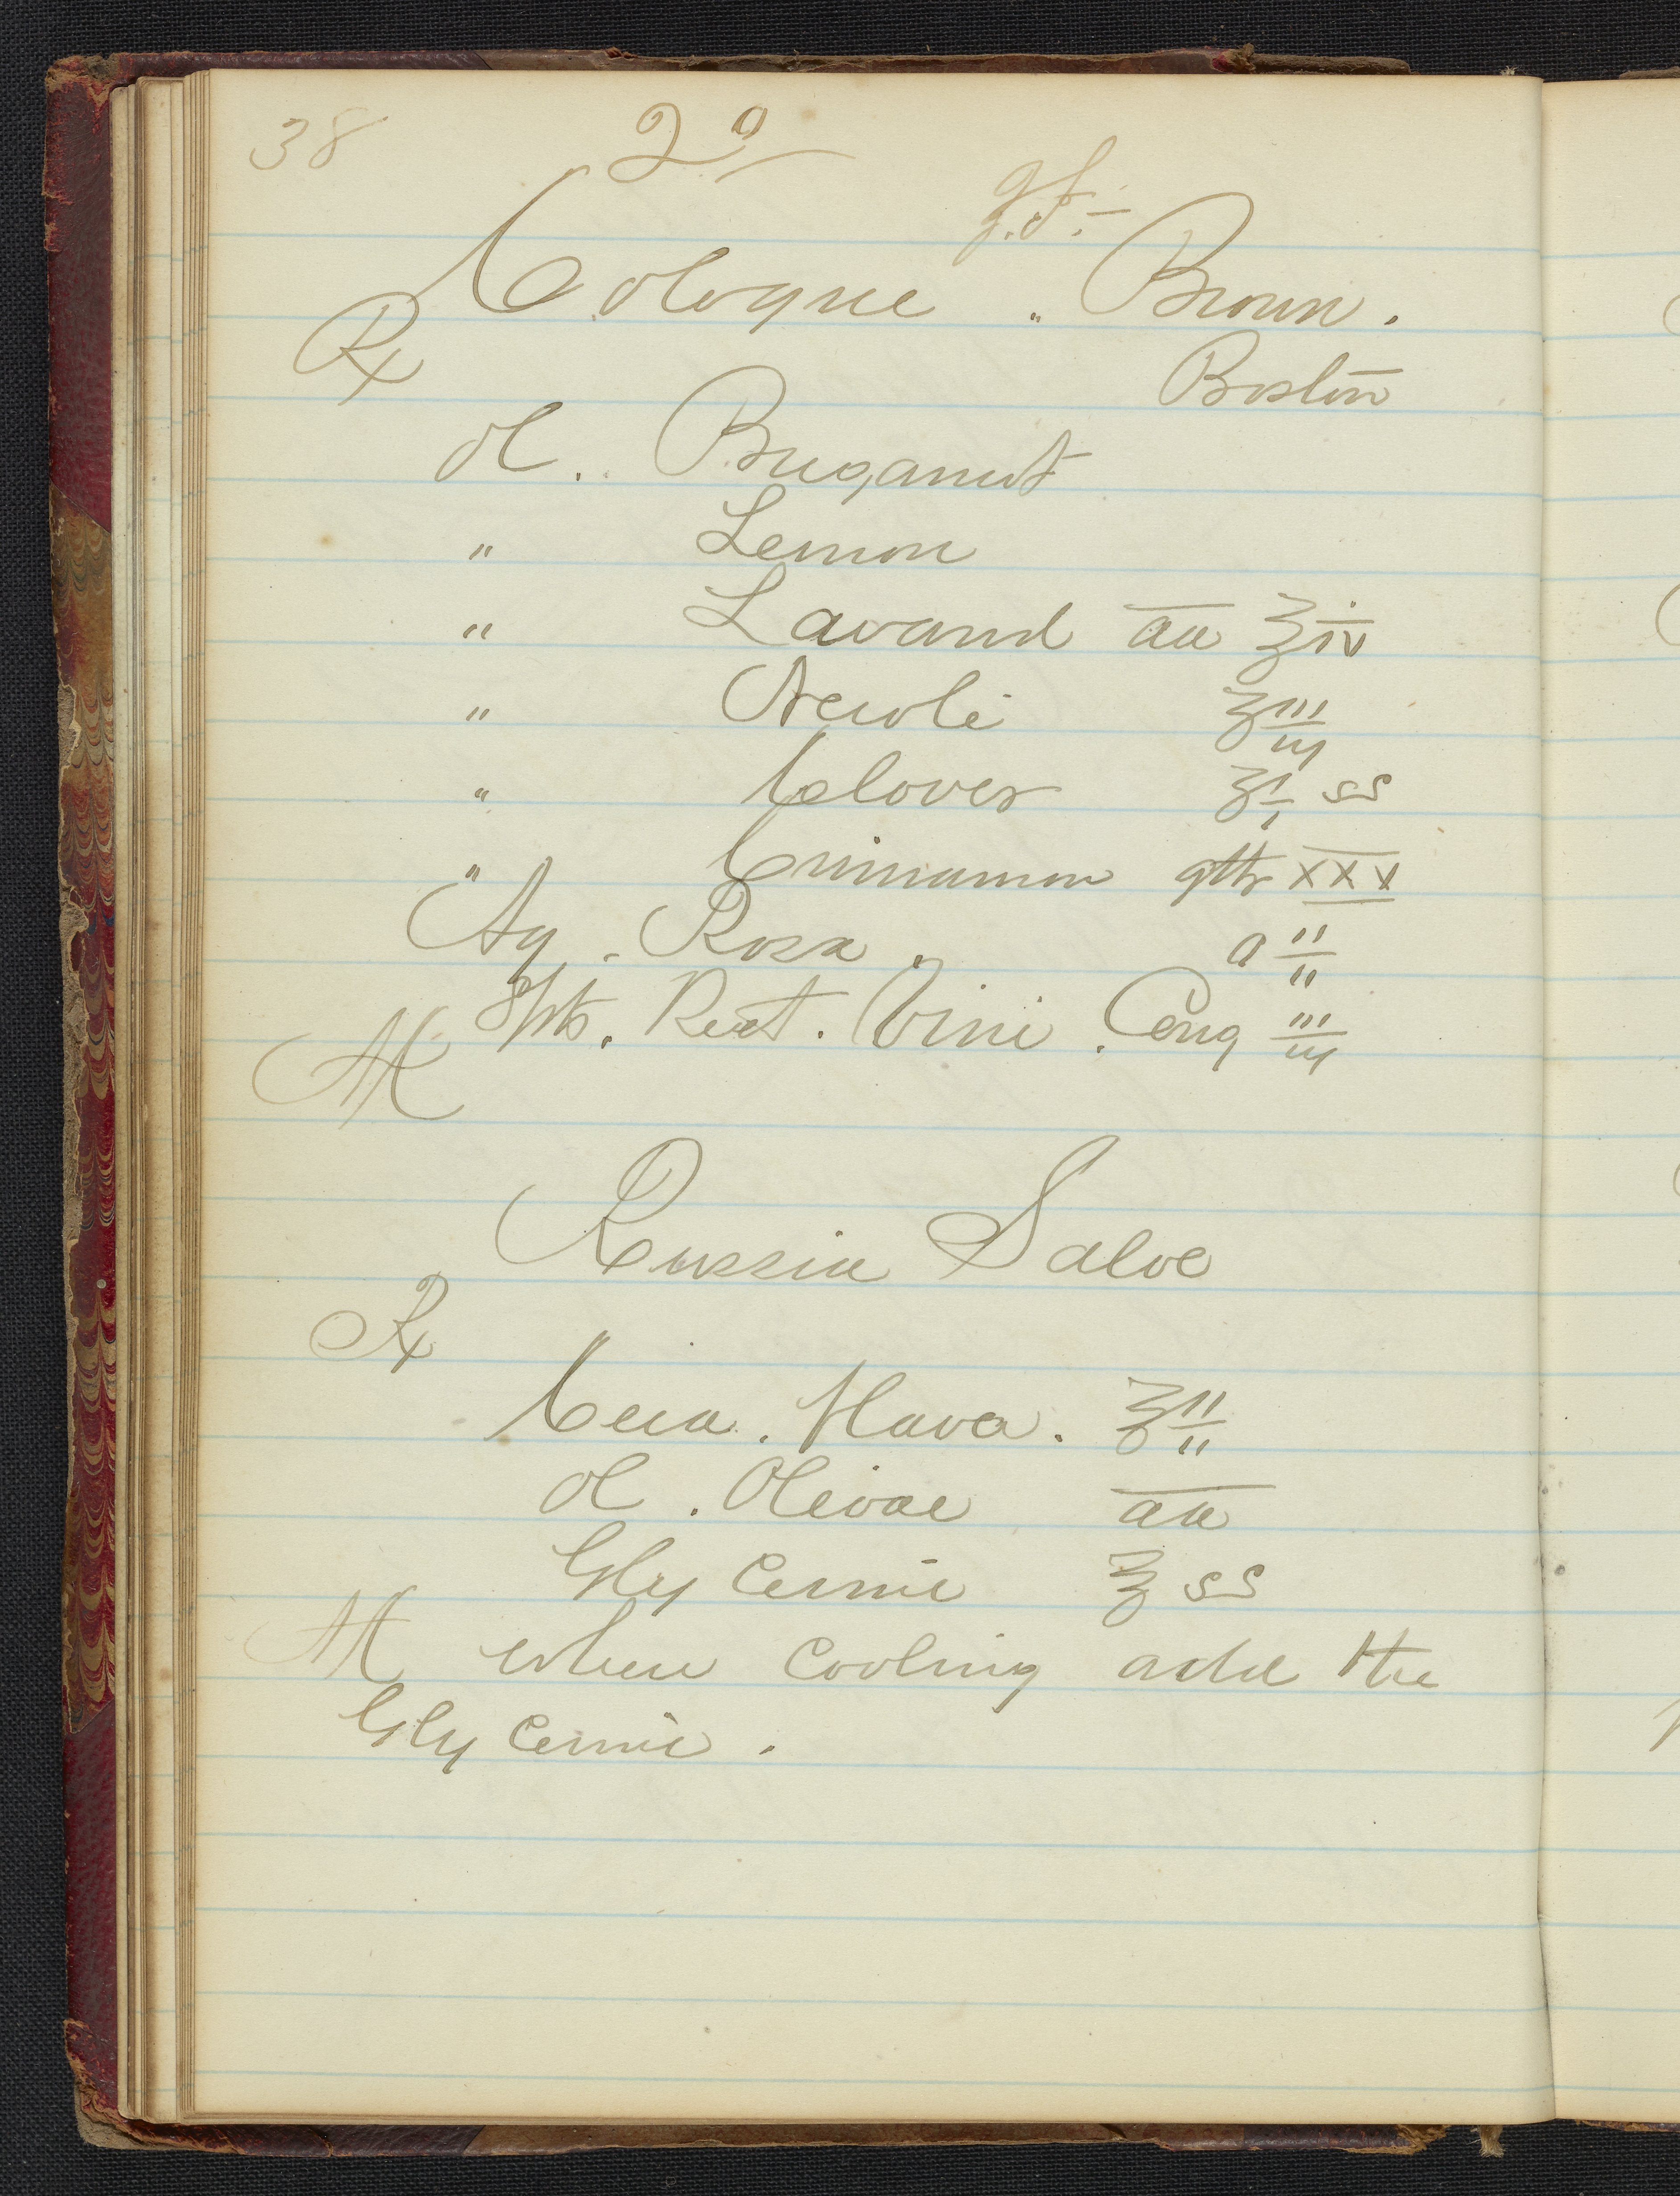 38
2º
Cologne " Brown.
Rx
Boston
Ol. Bergamot
" Lemon
" Lavand aa ℥iv
" Neroli ʒiii
" Cloves ʒi ss
" Cinnamon gtts xxv
Aq. Rosa. O ii
Spts. Rect. Vini. Cong iii
M
Russia Salve
Rx
Cera. Flava. ℥ii
Ol. Olivae aa
Glycerine ℥ ss
M when cooling add the
Glycerine.